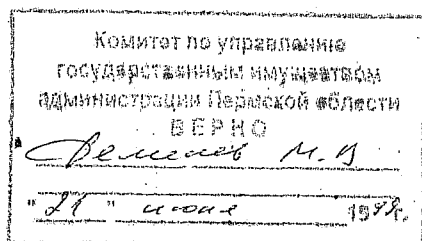 Комитет по управлению
государственным имуществом
администрации Пермской области
ВЕРНО
М. В
" 21 " июня 199 г.